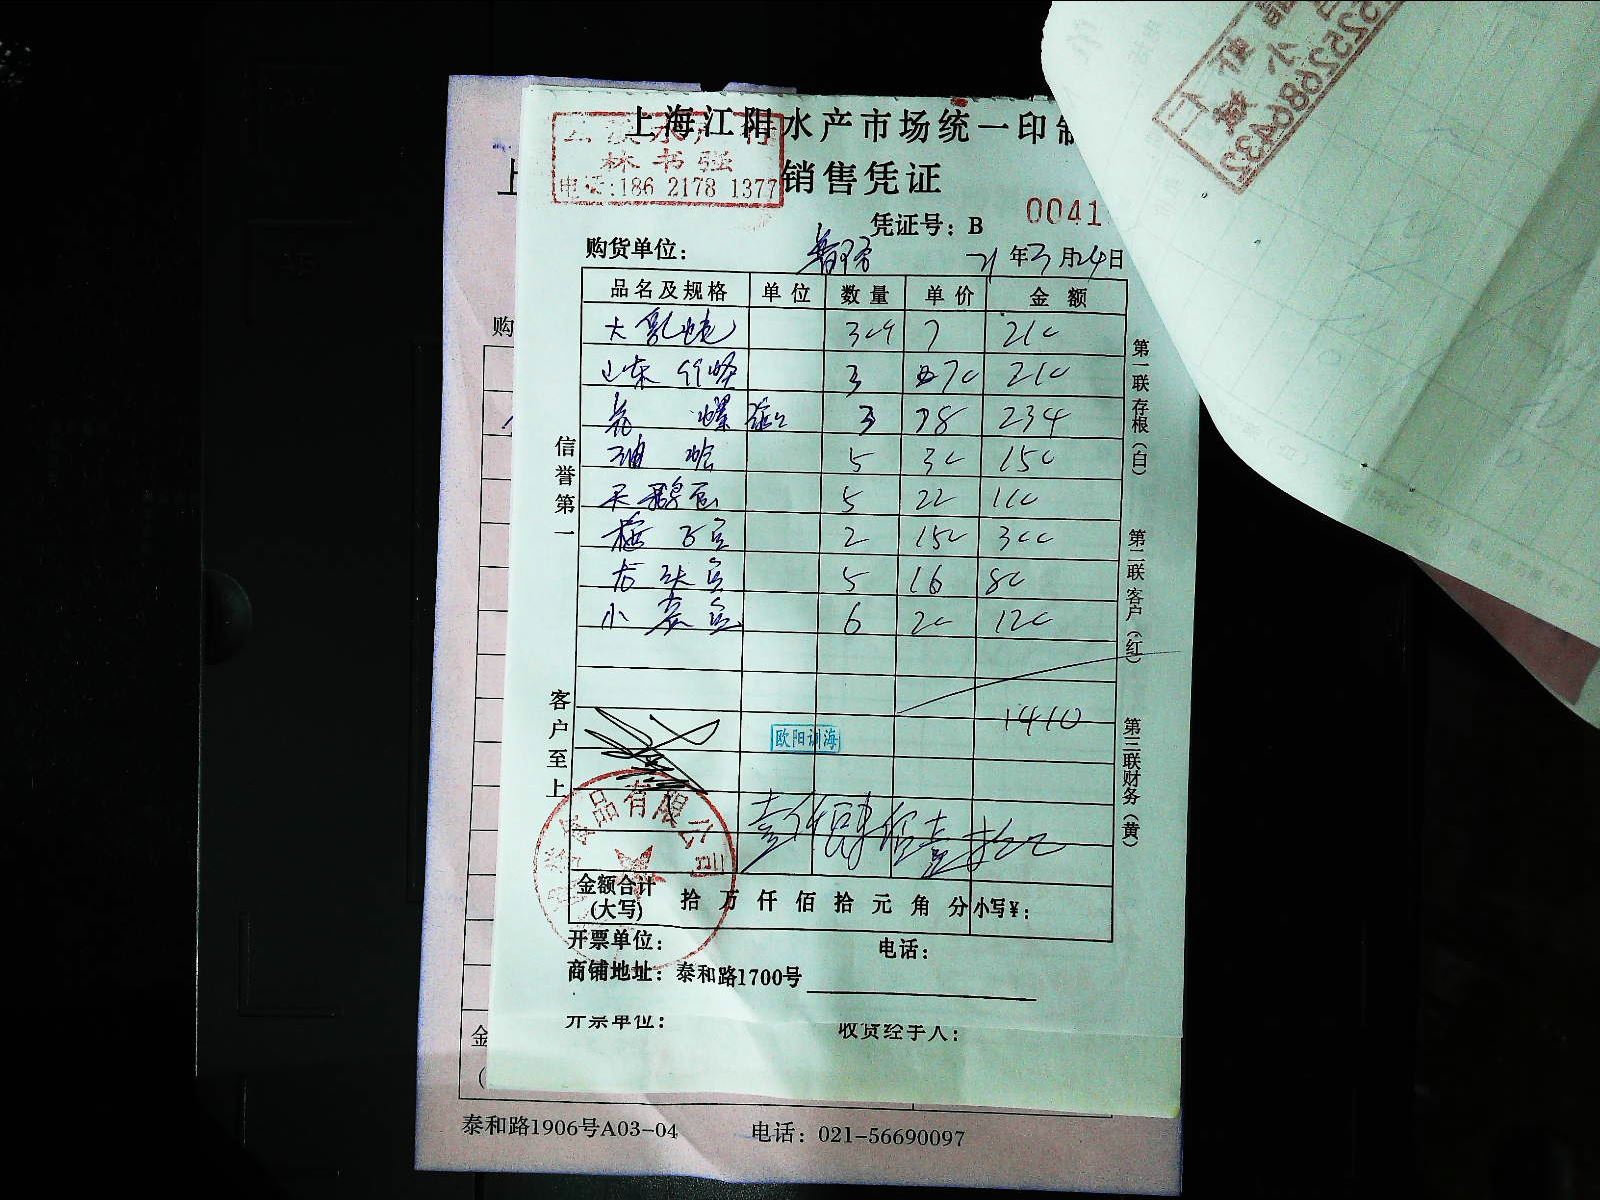 上海江阳水产市场统一印制
水产行
林书强
电话:186 2178 1377
销售凭证
凭证号：B 0041
购货单位：
21年3月24日
品名及规格 单位 数量 单价 金额
大乳 30只 7 210
山东竹蛏 3 70 210
花螺 3 78 234
油蛤 5 30 150
天鹅蛋 5 22 110
梅子鱼 2 150 300
龙头鱼 5 16 80
小黄鱼 6 20 120
1410
欧阳训海
壹仟肆佰壹拾元
食品有限公司
金额合计(大写) 拾 万 仟 佰 拾 元 角 分 小写¥：
开票单位： 电话：
商铺地址：泰和路1700号
开票单位： 收货经手人：
信誉第一
客户至上
第一联存根(白)
第二联客户(红)
第三联财务(黄)
购
金
泰和路1906号A03-04 电话：021-56690097